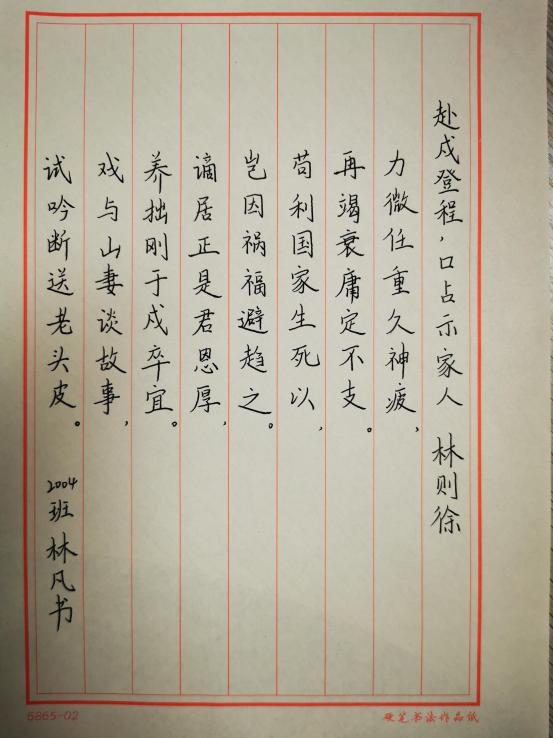 赴戍登程，口占示家人 林则徐
力微任重久神疲，
再竭衰庸定不支。
苟利国家生死以，
岂因祸福避趋之。
谪居正是君恩厚，
养拙刚于戍卒宜。
戏与山妻谈故事，
试吟断送老头皮。
2004班 林凡书
5865-02
硬笔书法作品纸